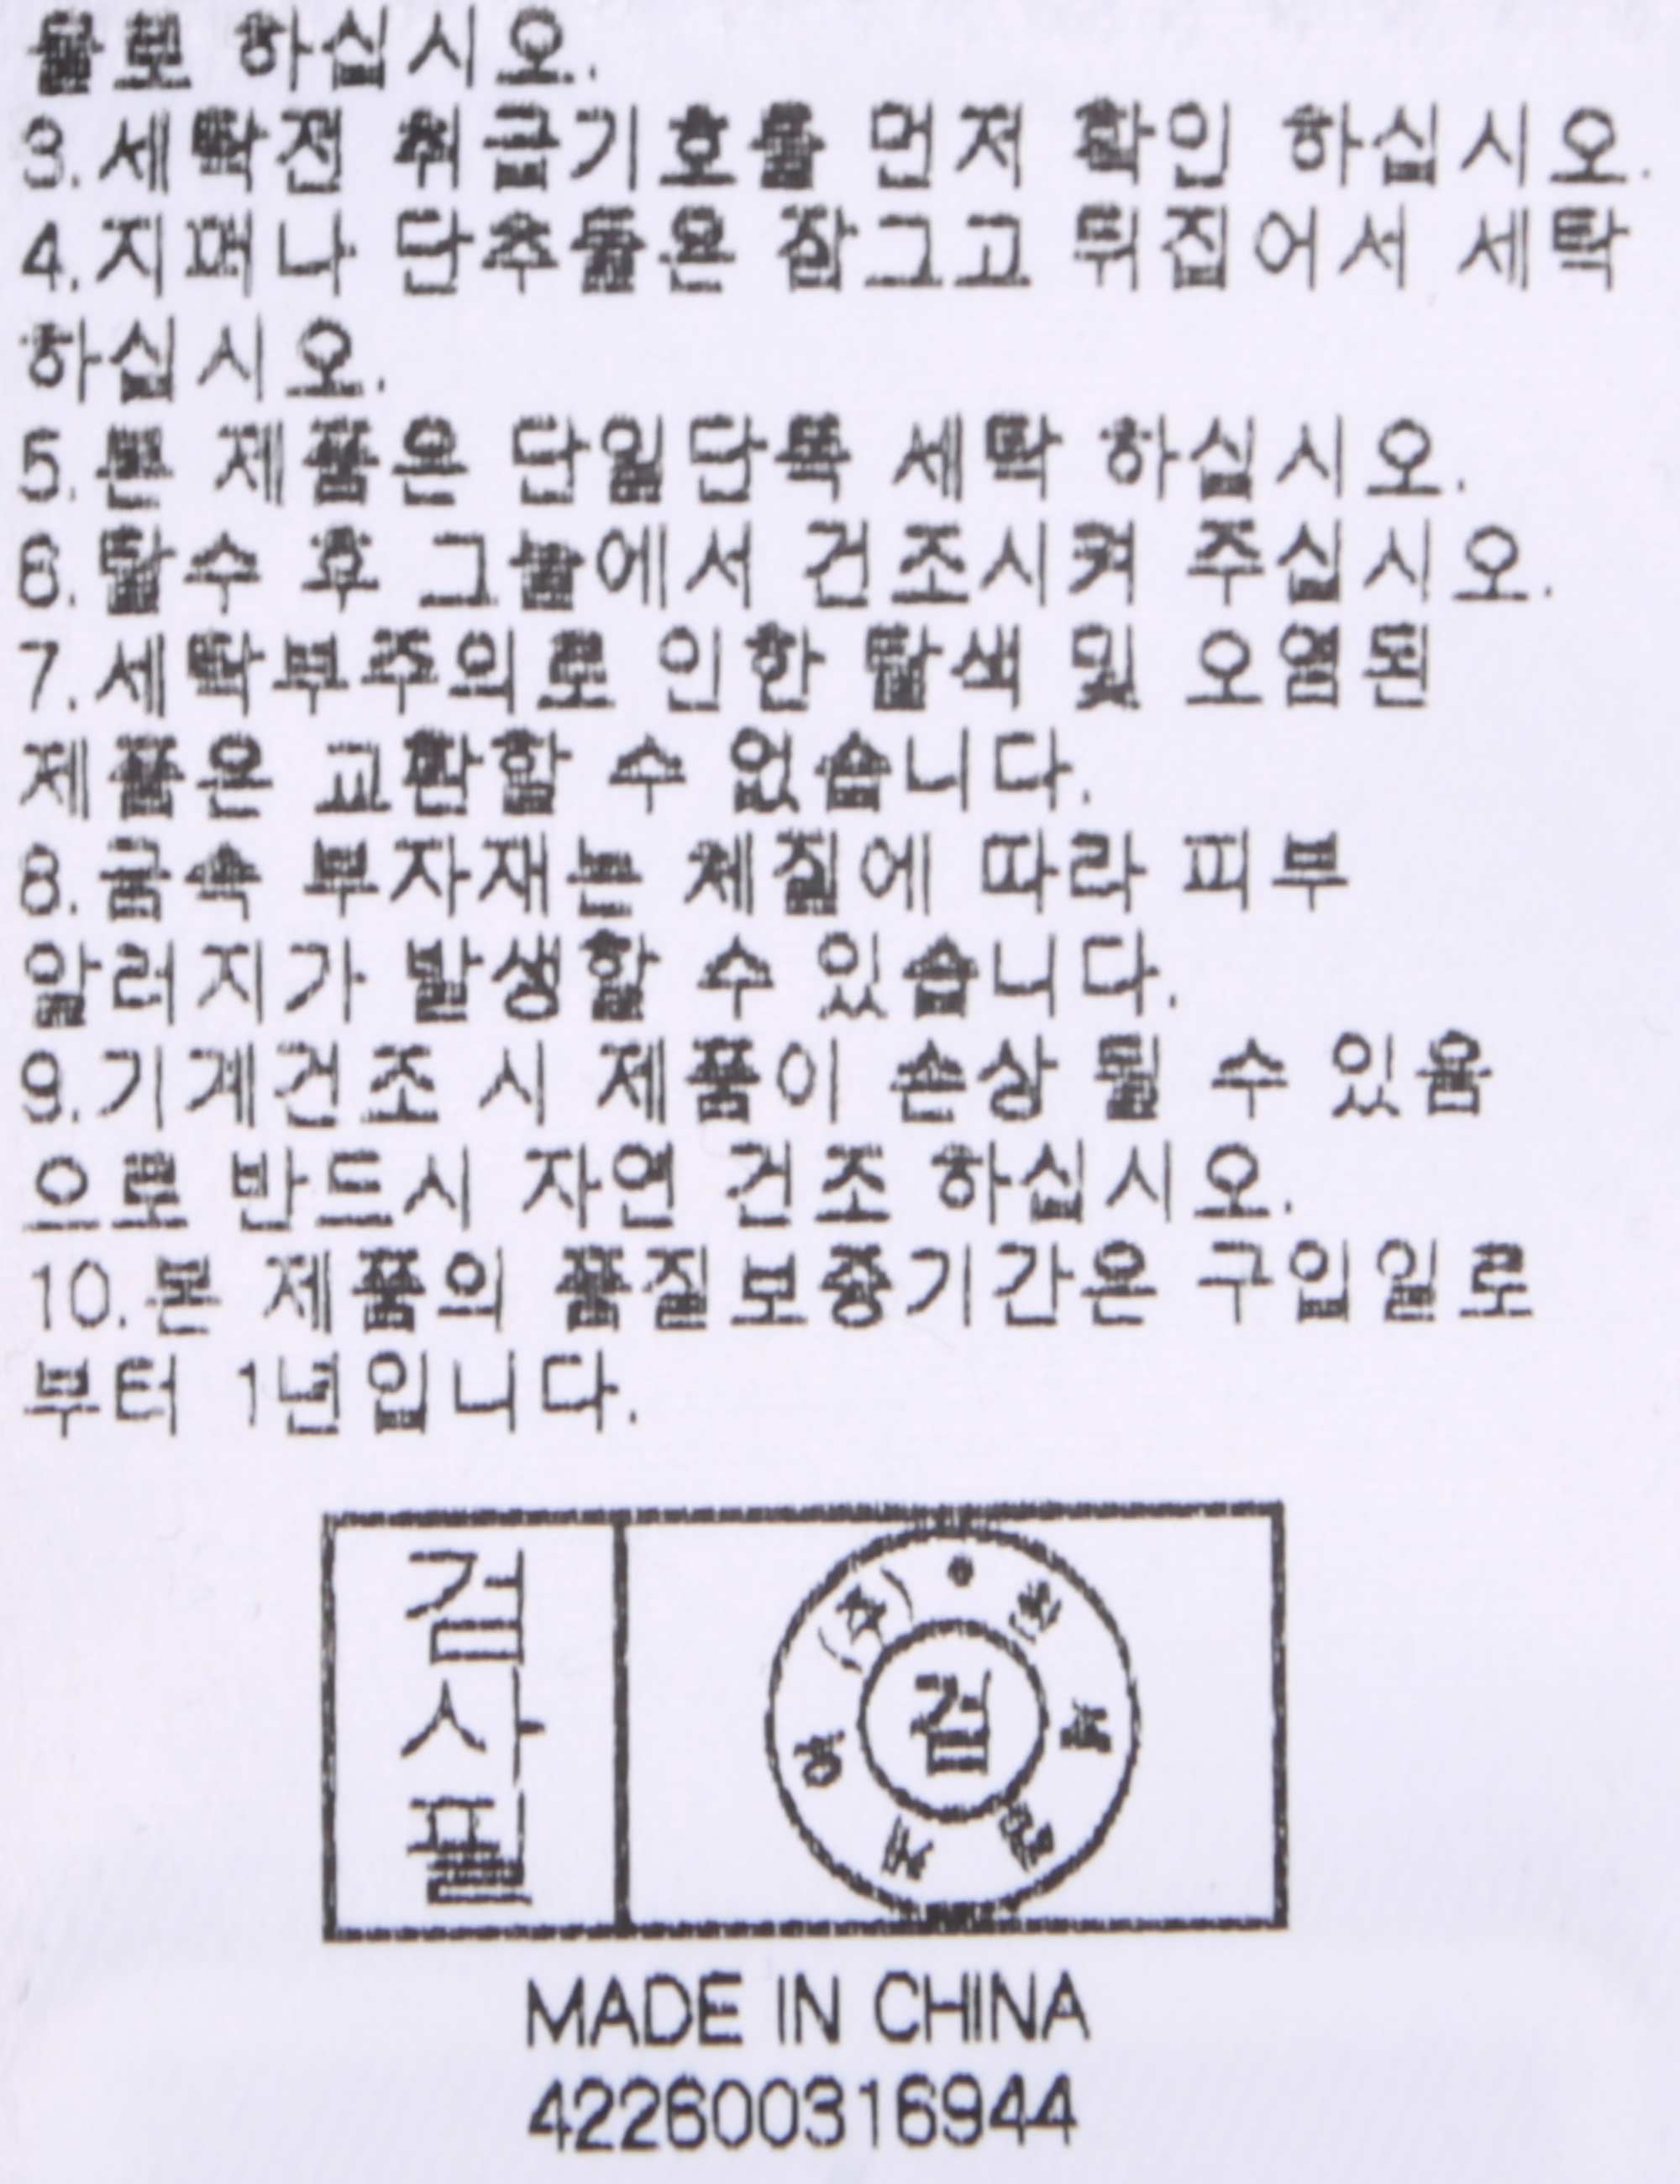 물로 하십시오.
3.세탁전 취급기호를 먼저 확인 하십시오.
4.지퍼나 단추들은 잠그고 뒤집어서 세탁
하십시오.
5.본 제품은 단일단독 세탁 하십시오.
6.탈수 후 그늘에서 건조시켜 주십시오.
7.세탁부주의로 인한 탈색 및 오염된
제품은 교환할 수 없습니다.
8.금속 부자재는 체질에 따라 피부
알러지가 발생할 수 있습니다.
9.기계건조 시 제품이 손상 될 수 있음
으로 반드시 자연 건조 하십시오.
10.본 제품의 품질보증기간은 구입일로
부터 1년입니다.
검사필
(주)
검
MADE IN CHINA
422600316944